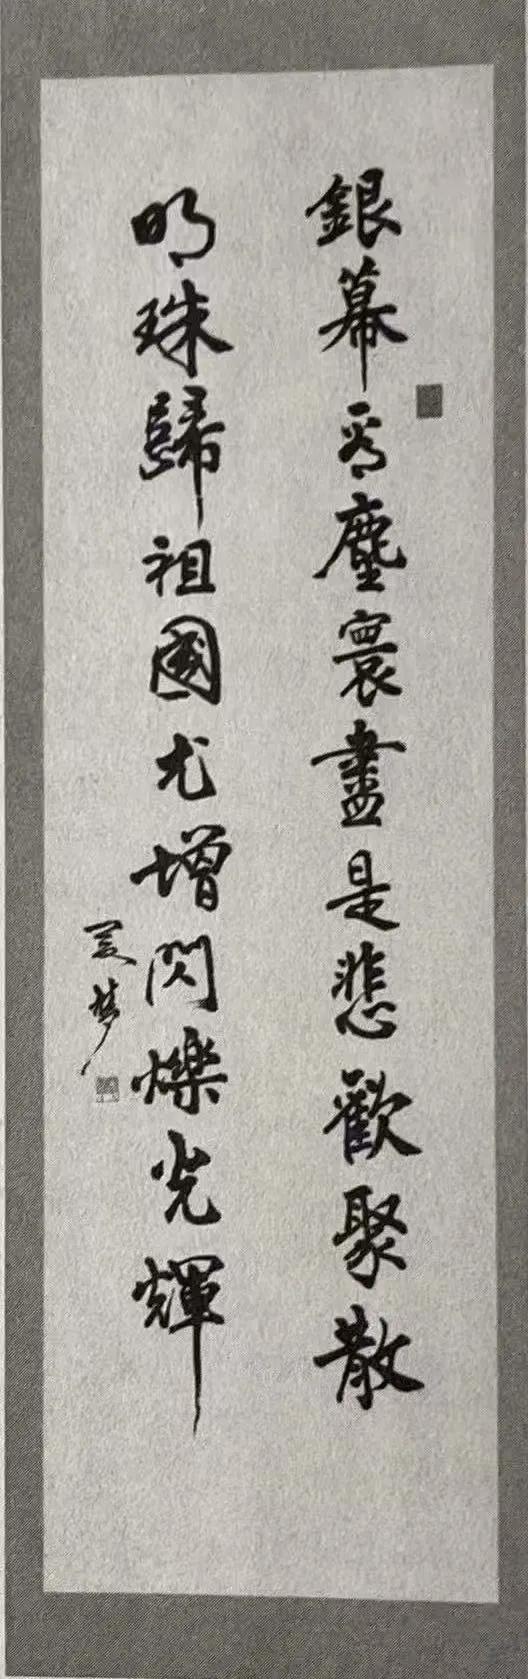 銀幕召塵寰盡是悲歡聚散
明珠歸祖國尤增閃爍光輝
夏夢